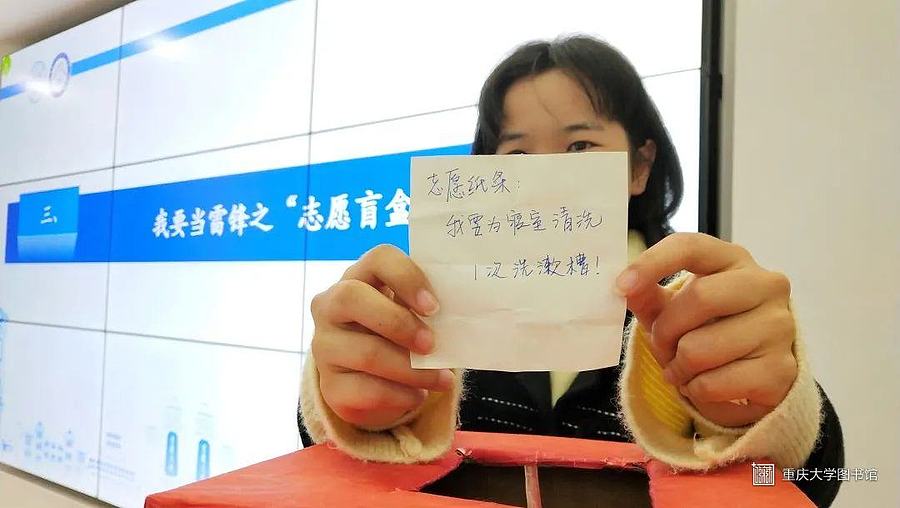 三、
我要当雷锋之“志愿盲盒
志愿纸条：
我要为寝室清洗
1次洗漱槽！
重庆大学图书馆